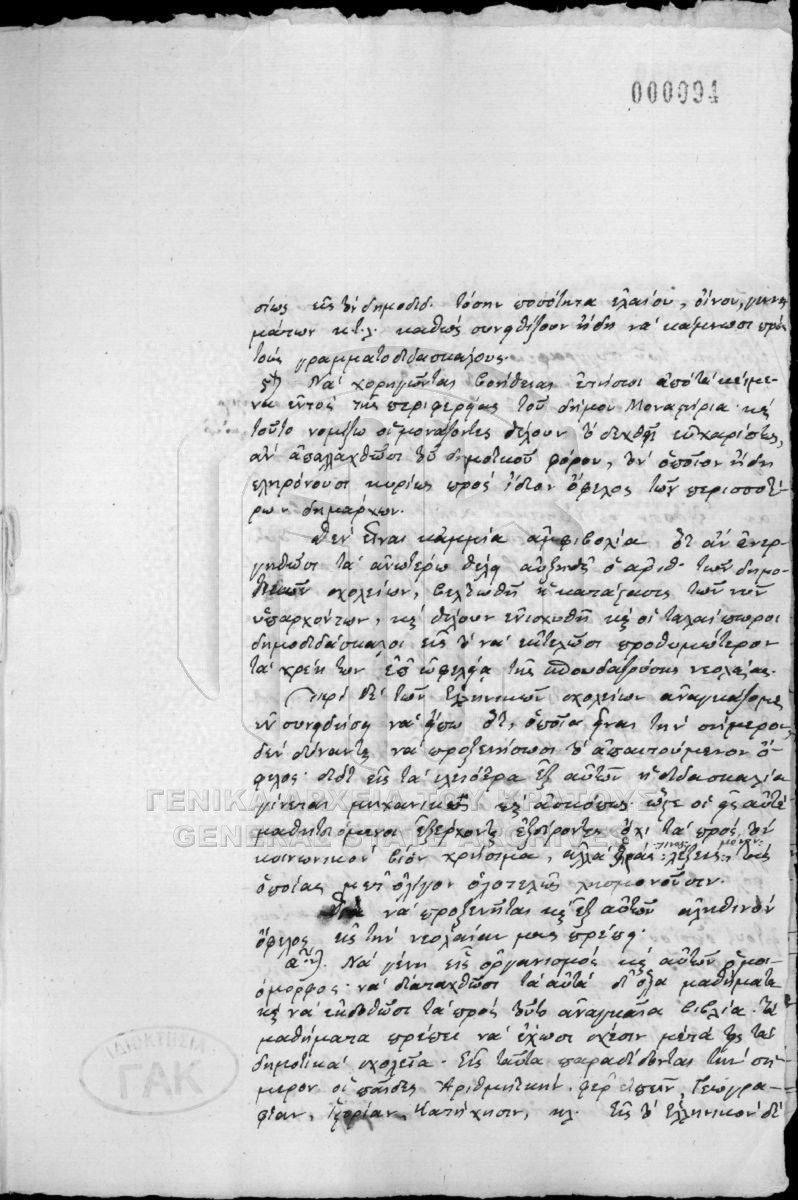 000094
σίως εἰς τὸν δημοδιδ. τόσην ποσότητα ἐλαίου, οἴνου, γεννη
μάτων κ.τ.λ. καθὼς συνηθίζουν ἤδη νὰ κάμνωσι πρὸς
τοὺς γραμματοδιδασκάλους.
ϛ) Νὰ χορηγῶνται βοήθειαι ἐτήσιοι ἀπὸ τὰ κείμε-
να ἐντὸς τῆς περιφερείας τοῦ δήμου Μοναστήρια· καὶ
τοῦτο νομίζω οἱ μονάζοντες θέλουν τὸ δεχθῆ εὐχαρίστως,
ἂν ἀπαλλαχθῶσι τοῦ δημοτικοῦ φόρου, τὸν ὁποῖον ἤδη
πληρόνουσι κυρίως πρὸς ἴδιον ὄφελος τῶν περισσοτέ-
ρων δημάρχων.
Δὲν εἶναι καμμία ἀμφιβολία, ὅτι ἂν ἐνερ-
γηθῶσι τὰ ἀνωτέρω θέλει αὐξηθῆ ὁ ἀριθ. τῶν δημο-
τικῶν σχολείων, βελτιωθῆ ἡ κατάστασις τῶν νῦν
ὑπαρχόντων, καὶ θέλουν ἐνισχυθῆ καὶ οἱ ταλαίπωροι
δημοδιδάσκαλοι εἰς τὸ νὰ ἐκτελῶσι προθυμότερον
τὰ χρέη των ἐπ' ὠφελείᾳ τῆς σπουδαζούσης νεολαίας.
Περὶ δὲ τῶν Ἑλληνικῶν σχολείων ἀναγκάζομαι
ἐν συνειδήσει νὰ εἴπω ὅτι, ὁποῖα εἶναι τὴν σήμερον,
δὲν δύνανται νὰ προξενήσωσι τὸ ἀπαιτούμενον ὄ-
φελος· διότι εἰς τὰ πλειότερα ἐξ αὐτῶν ἡ διδασκαλία
γίνεται μηχανικῶς καὶ ἀσκόπως· ὥστε οἱ εἰς αὐτὰ
μαθητευόμενοι ἐξέρχονται ἐξεύροντες ὄχι τὰ πρὸς τὸν
κοινωνικὸν βίον χρήσιμα, ἀλλὰ τινὰς λέξεις μόνον, τὰς
ὁποίας μετ' ὀλίγον ὁλοτελῶς λησμονοῦσιν.
Διὰ νὰ προξενῆται καὶ ἐξ αὐτῶν ἀληθινὸν
ὄφελος εἰς τὴν νεολαίαν μας πρέπει·
α.ον) Νὰ γένῃ εἷς ὀργανισμὸς καὶ αὐτῶν ὁμοιό-
μορφος· νὰ διαταχθῶσι τὰ αὐτὰ δι' ὅλα μαθήματα
καὶ νὰ ἐκδοθῶσι τὰ πρὸς τοῦτο ἀναγκαῖα βιβλία. Τὰ
μαθήματα πρέπει νὰ ἔχωσι σχέσιν μετὰ τῆς τὰ
δημοτικὰ σχολεῖα. Εἰς ταῦτα παραδίδονται τὴν σή-
μερον οἱ παῖδες Ἀριθμητικήν, φερ' εἰπεῖν, Γεωγρα-
φίαν, Ἱστορίαν, Κατήχησιν, κλ. Εἰς τὸ Ἑλληνικὸν δὲ
ΓΕΝΙΚΑ ΑΡΧΕΙΑ ΤΟΥ ΚΡΑΤΟΥΣ
GENERAL STATE ARCHIVES
ΙΔΙΟΚΤΗΣΙΑ
ΓΑΚ